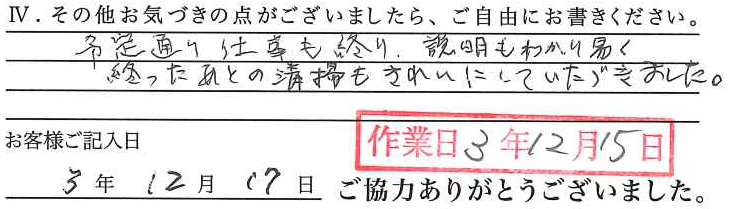 Ⅳ.その他お気づきの点がございましたら、ご自由にお書きください。
予定通り仕事も終り、説明もわかり易く
終ったあとの清掃もきれいにしていただきました。
お客様ご記入日
作業日3年12月15日
3年12月17日
ご協力ありがとうございました。